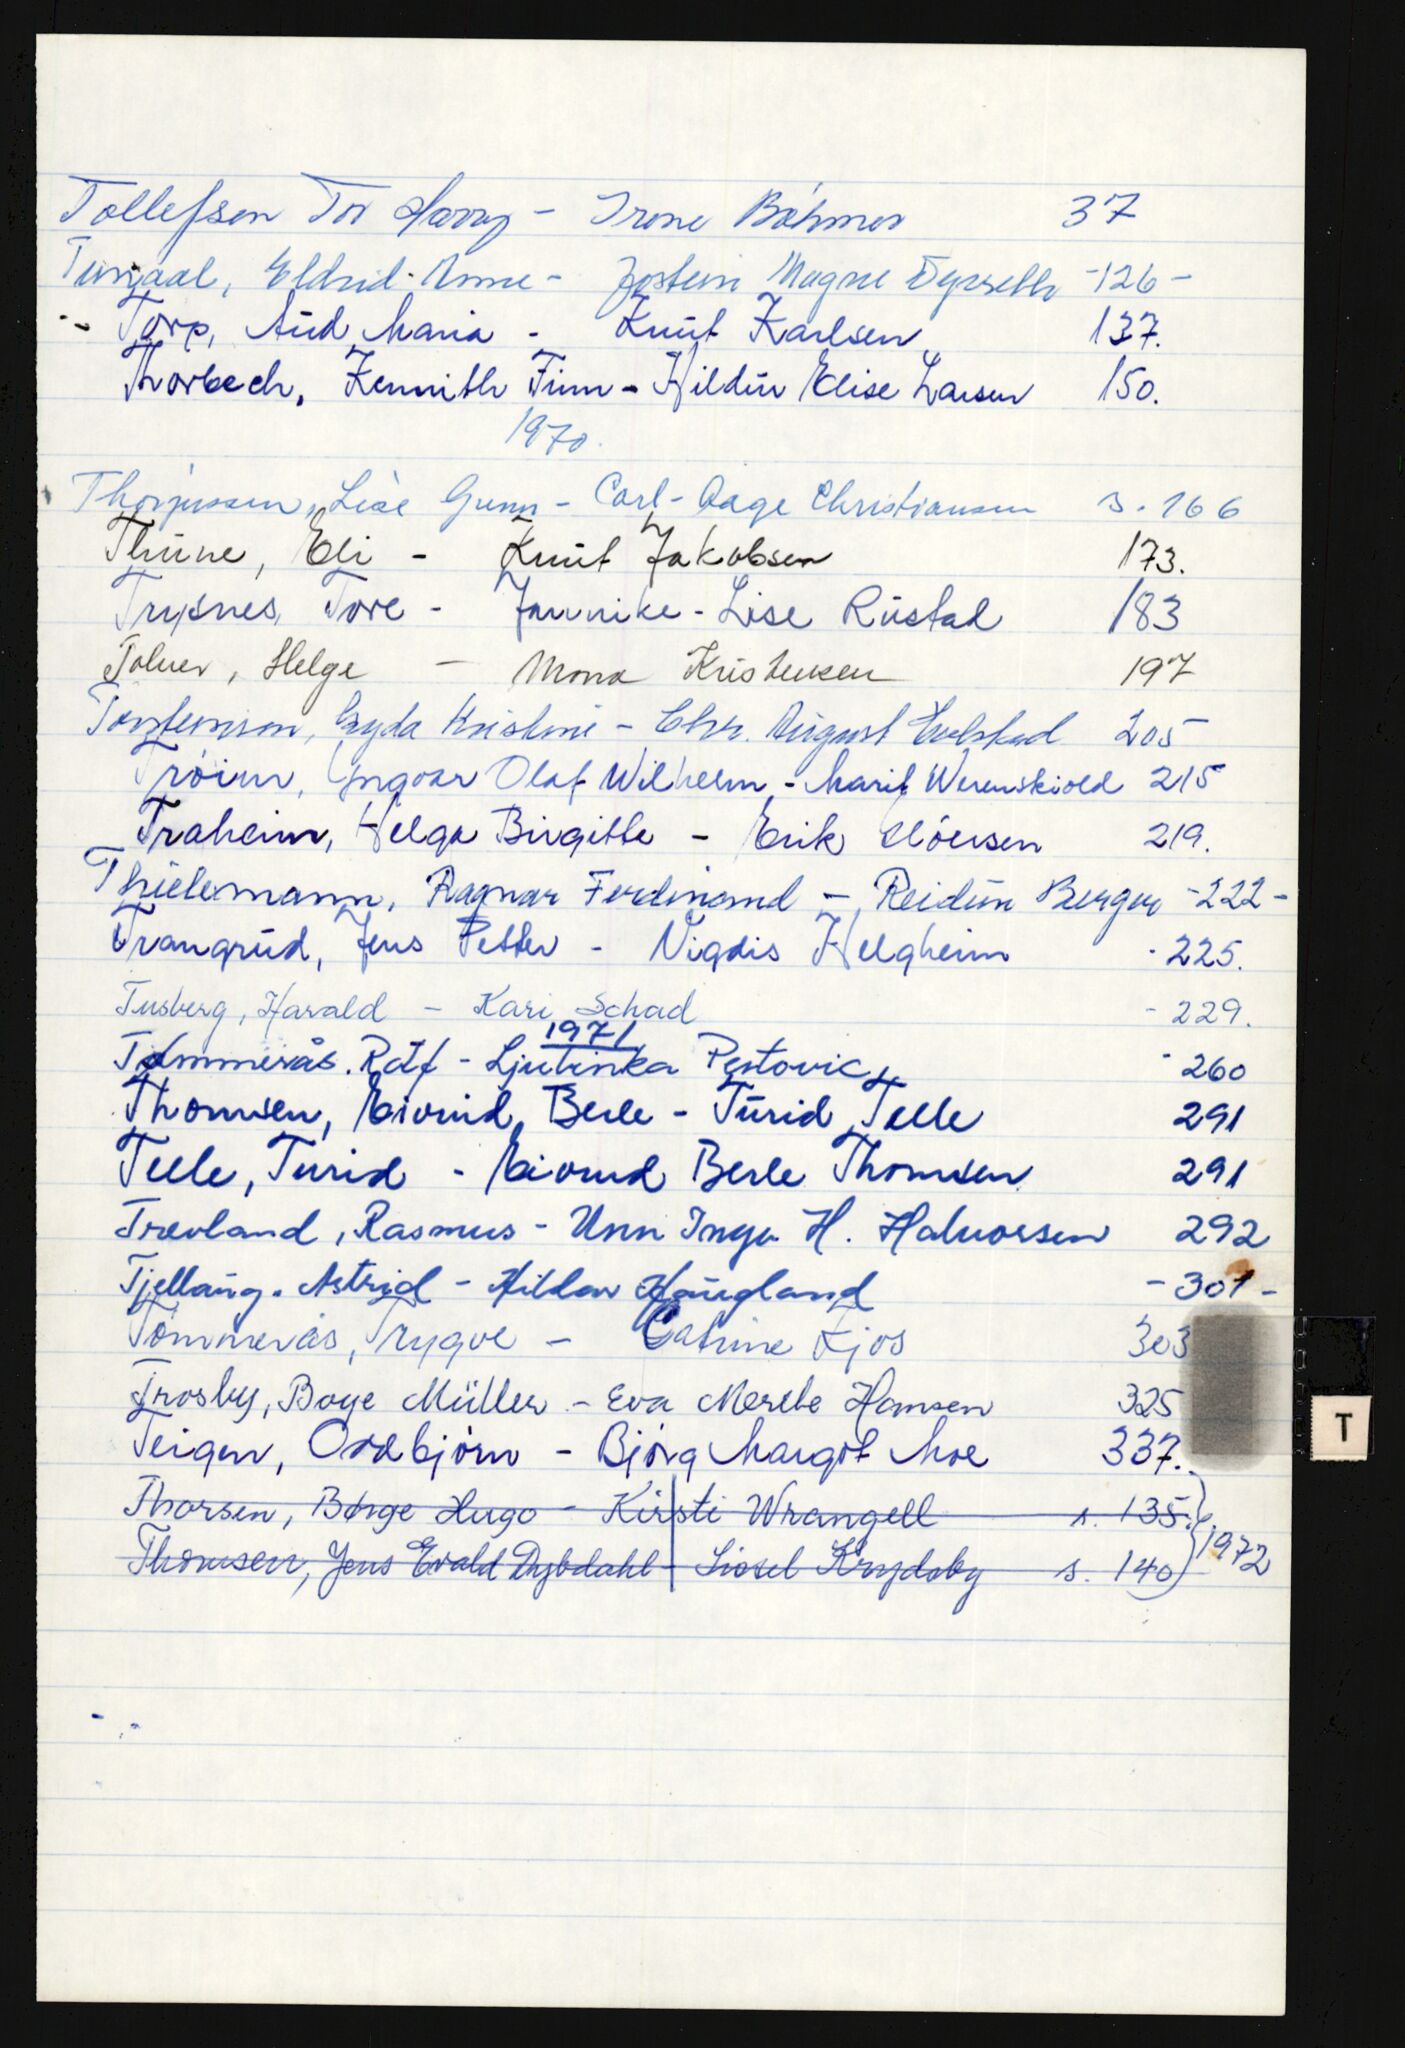 Tollefsen Tor Harry - Irene Böhmer 37
Eldrid Anne - Jostein Magne -126-
Torp, Aud Maria - Knut Karlsen 137.
Thorbech, Kennith Finn - Hildur Elise Larsen 150.
1970.
Lise Gunn - Carl-Aage Christiansen s. 166
Thune, Eli - Knut Jakobsen 173.
Trysnes, Tore - Jannike-Lise Rustad 183
Helge - Mona Kristensen 197
Gyda Kristine - Chr. August 205
Tröim, Yngvar Olaf Wilhelm - Marit Werenskiold 215
Traheim, Helga Birgitte - Erik 219.
Thielemann, Ragnar Ferdinand - Reidun Berger -222-
Trangrud, Jens Petter - Vigdis Helgheim - 225.
Tusberg, Harald - Kari Schad - 229.
1971
Tømmerås. Rolf - Ljubinka Pestovic - 260
Thomsen, Eivind Berle - Turid Telle 291
Telle, Turid - Eivind Berle Thomsen 291
Trevland, Rasmus - Unn Inga H. Halvorsen 292
Tjellaug. Astrid - Hildar Haugland - 301 -
Tömmerås, Trygve - Catrine Kjos 303
Trosby, Boye Müller - Eva Merete Hansen 325
Teigen, Oddbjörn - Bjørg Margot Moe 337.
Thorsen, Børge Hugo - Kirsti Wrangell s. 135
Thomsen, Jens Evald Dybdahl - Lissel s. 140 1972
T